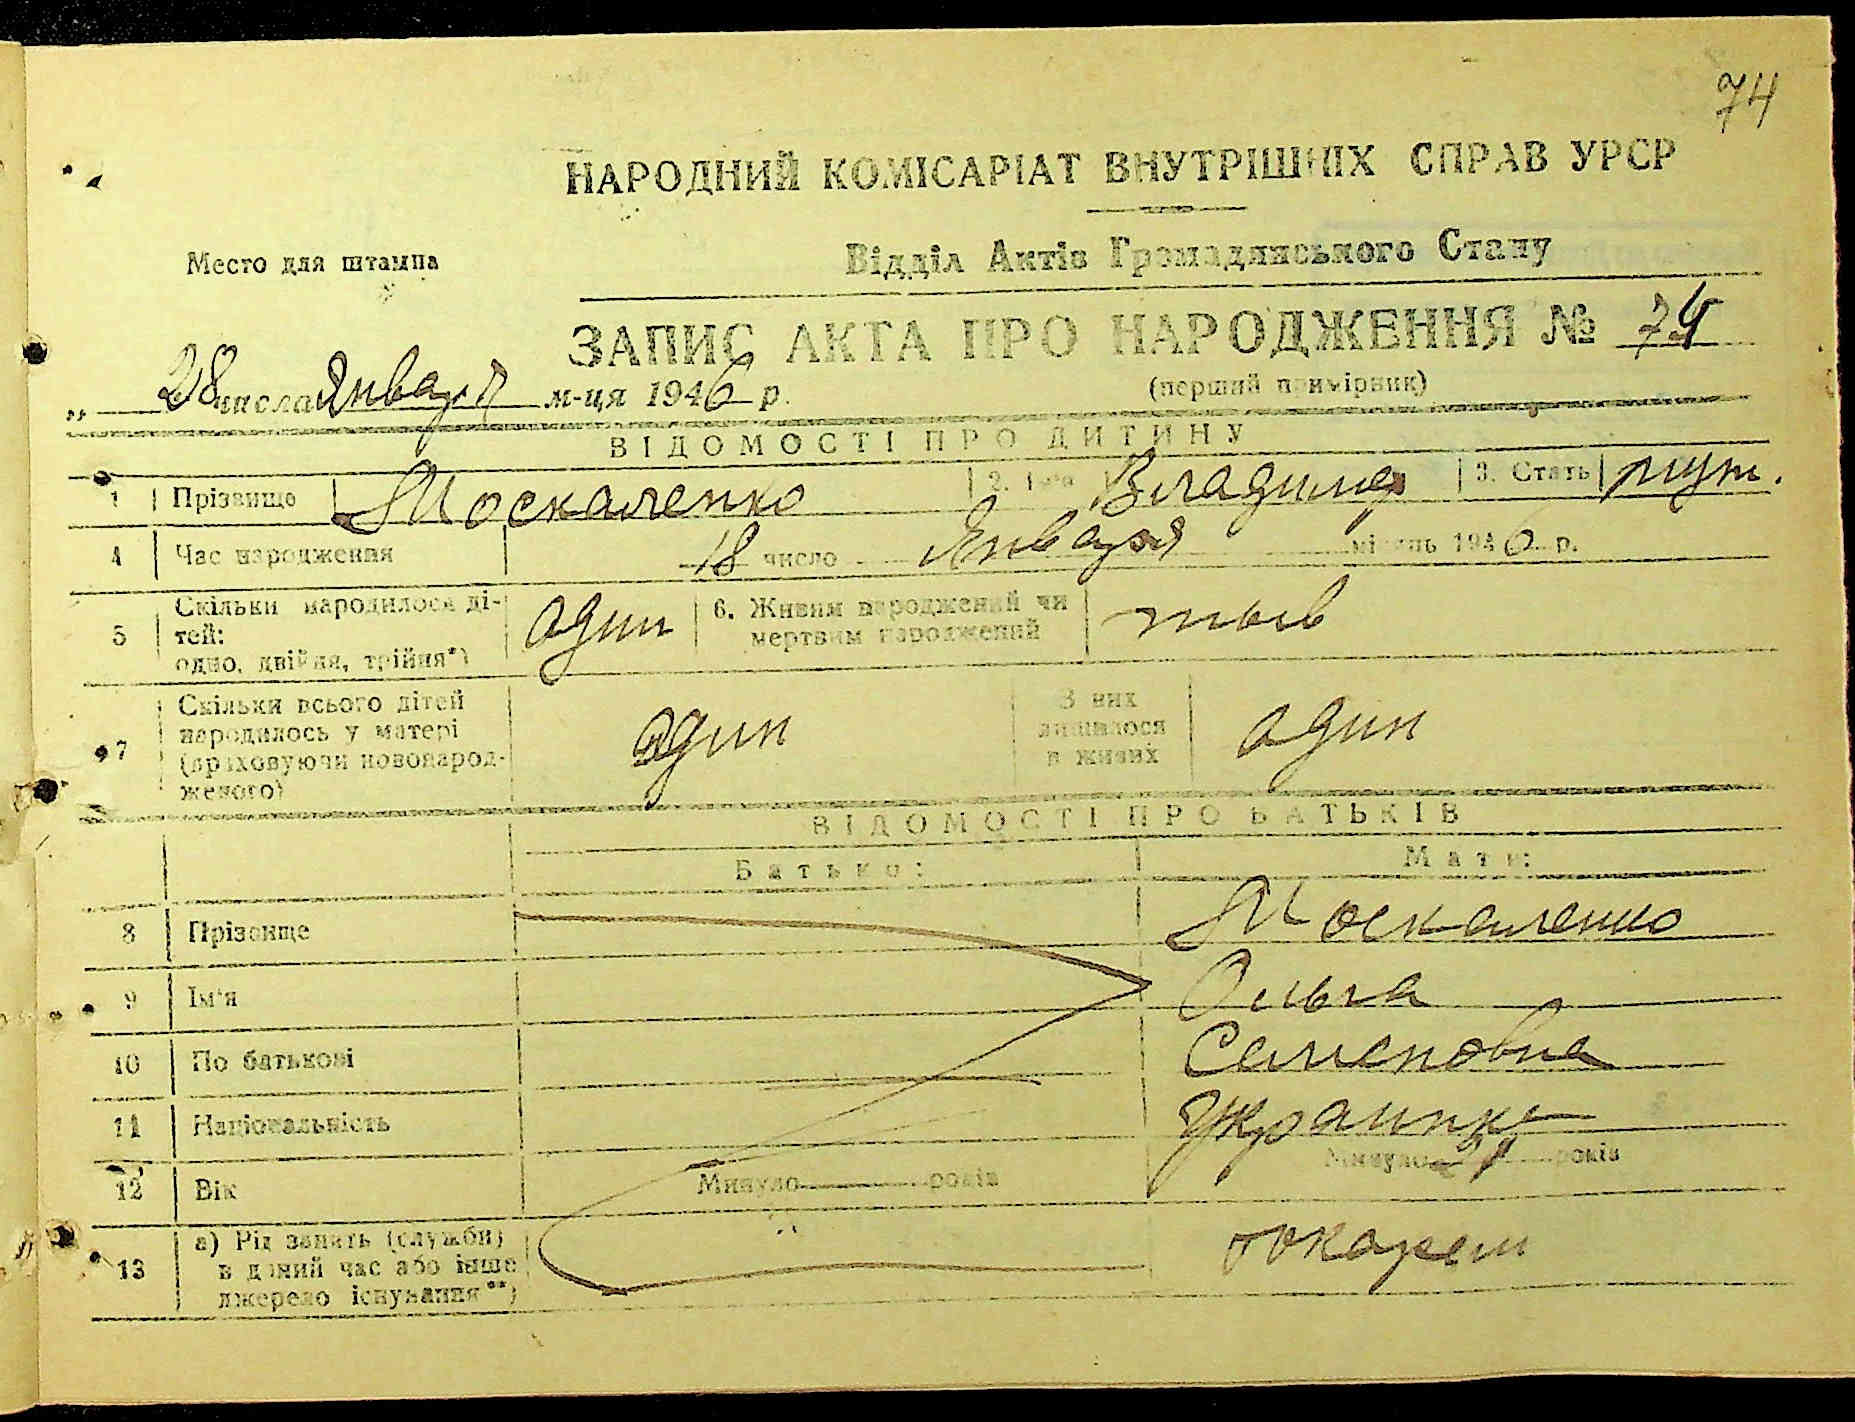 74
НАРОДНИЙ КОМІСАРІАТ ВНУТРІШНІХ СПРАВ УРСР
Место для штампа
Відділ Актів Громадянського Стану
ЗАПИС АКТА ПРО НАРОДЖЕННЯ № 74
(перший примірник)
„ 28 числа Января м-ця 1946 р.
ВІДОМОСТІ ПРО ДИТИНУ
1 Прізвище Москаленко 2. Ім'я Владимир 3. Стать муж.
4 Час народження 18 число Января місяць 1946 р.
5 Скільки народилося ді-
тей:
одно, двійня, трійня*)
один
6. Живим народжений чи
мертвим народжений
7 Скільки всього дітей
народилось у матері
(враховуючи новонарод-
женого)
один
З них
лишилося
в живих
один
ВІДОМОСТІ ПРО БАТЬКІВ
Батько: Мати:
8 Прізвище Москаленко
9 Ім'я Ольга
10 По батькові Семеновна
11 Національність Украинка
12 Вік Минуло років Минуло 21 років
13 а) Рід занять (служби)
в даний час або інше
джерело існування**)
токарем